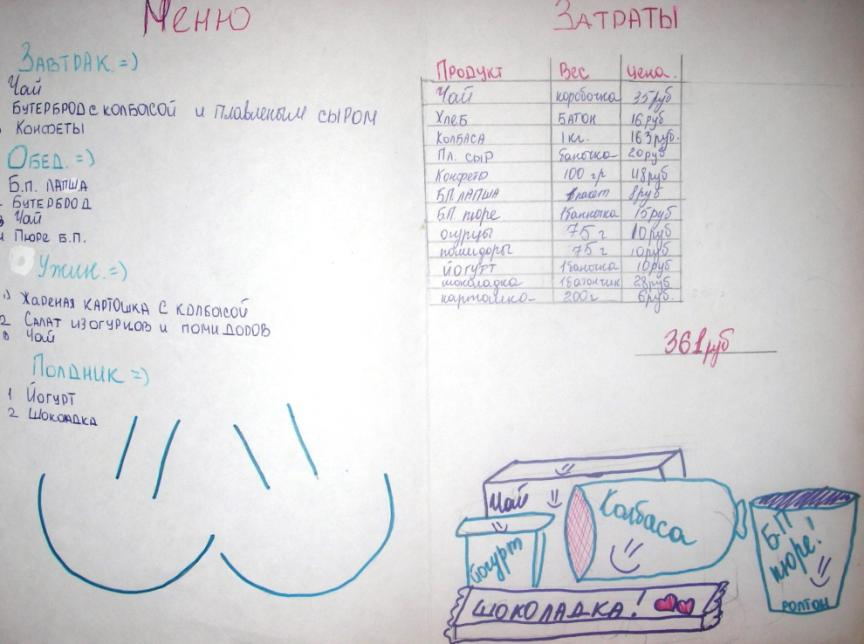 Меню
Завтрак =)
Чай
Бутерброд с колбасой и плавленым сыром
Конфеты
Обед =)
Б.п. лапша
Бутерброд
Чай
Пюре Б.П.
Ужин =)
1) Жареная картошка с колбасой
2 Салат из огурков и помидоров
3 Чай
Полдник =)
1 Йогурт
2 Шоколадка
Затраты
Продукт Вес Цена.
Чай коробочка 35руб
Хлеб батон 16руб
Колбаса 1кг. 163руб.
Пл. сыр баночка 20руб
Конфето 100 гр 48руб
БП лапша 1пакет 8руб
Б.П. пюре 1баночка 15руб
огурцы 75 г 10руб
помидоры 75 г 10руб
йогурт 1баночка 10руб
шоколадка 1батончик 28руб
картошка 200г 6руб.
361руб
Чай
Колбаса
Йогурт
Б.П
пюре!
Ролтон
Шоколадка!